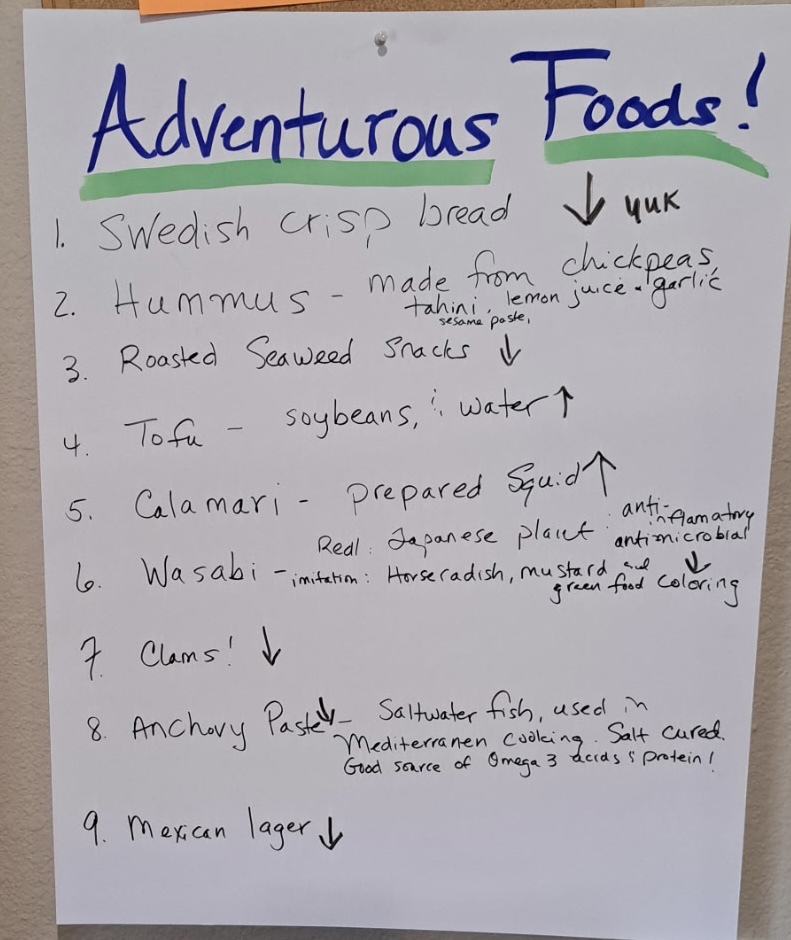 Adventurous Foods!
1. Swedish crisp bread ↓ yuk
2. Hummus - made from chickpeas,
tahini, lemon juice & garlic
sesame paste,
3. Roasted Seaweed Snacks ↓
4. Tofu - soybeans, & water ↑
5. Calamari - prepared Squid ↑
Real: Japanese plant: anti-inflamatory
antimicrobial
6. Wasabi - imitation: Horseradish, mustard and
green food coloring ↓
7. Clams! ↓
8. Anchovy Paste ↓ - Saltwater fish, used in
Mediterranen cooking. Salt cured.
Good source of Omega 3 acids & protein!
9. Mexican lager ↓